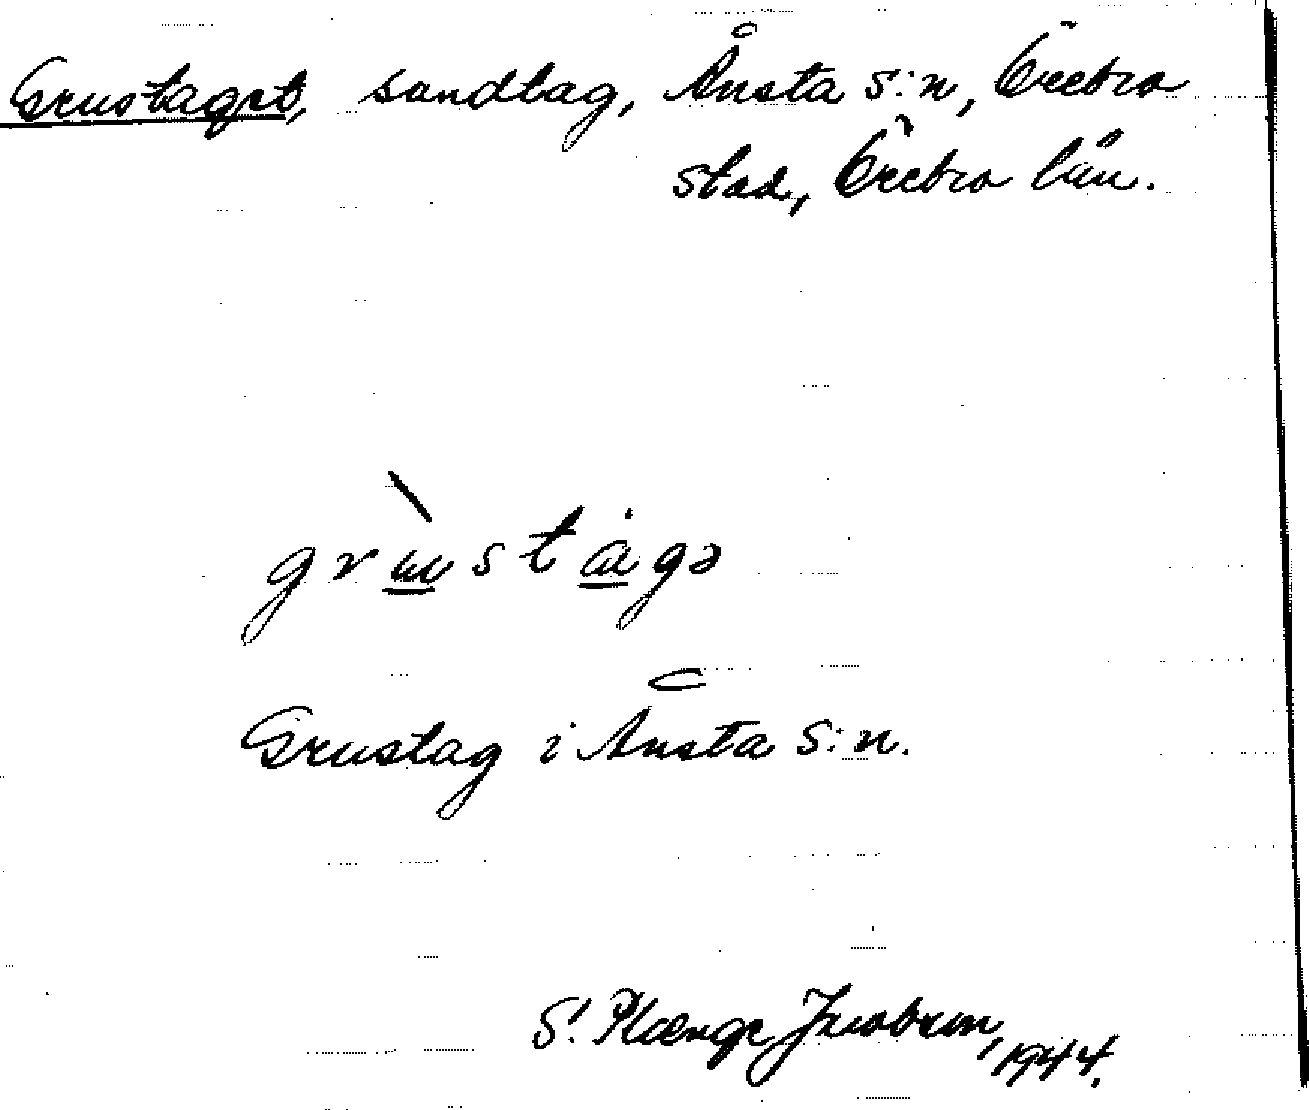 Grustaget, sandtag, Ånsta s:n, Örebro
stad, Örebro län.
grùstȧgə
Grustag i Ånsta s:n.
S. Plænge Jacobson, 1944.